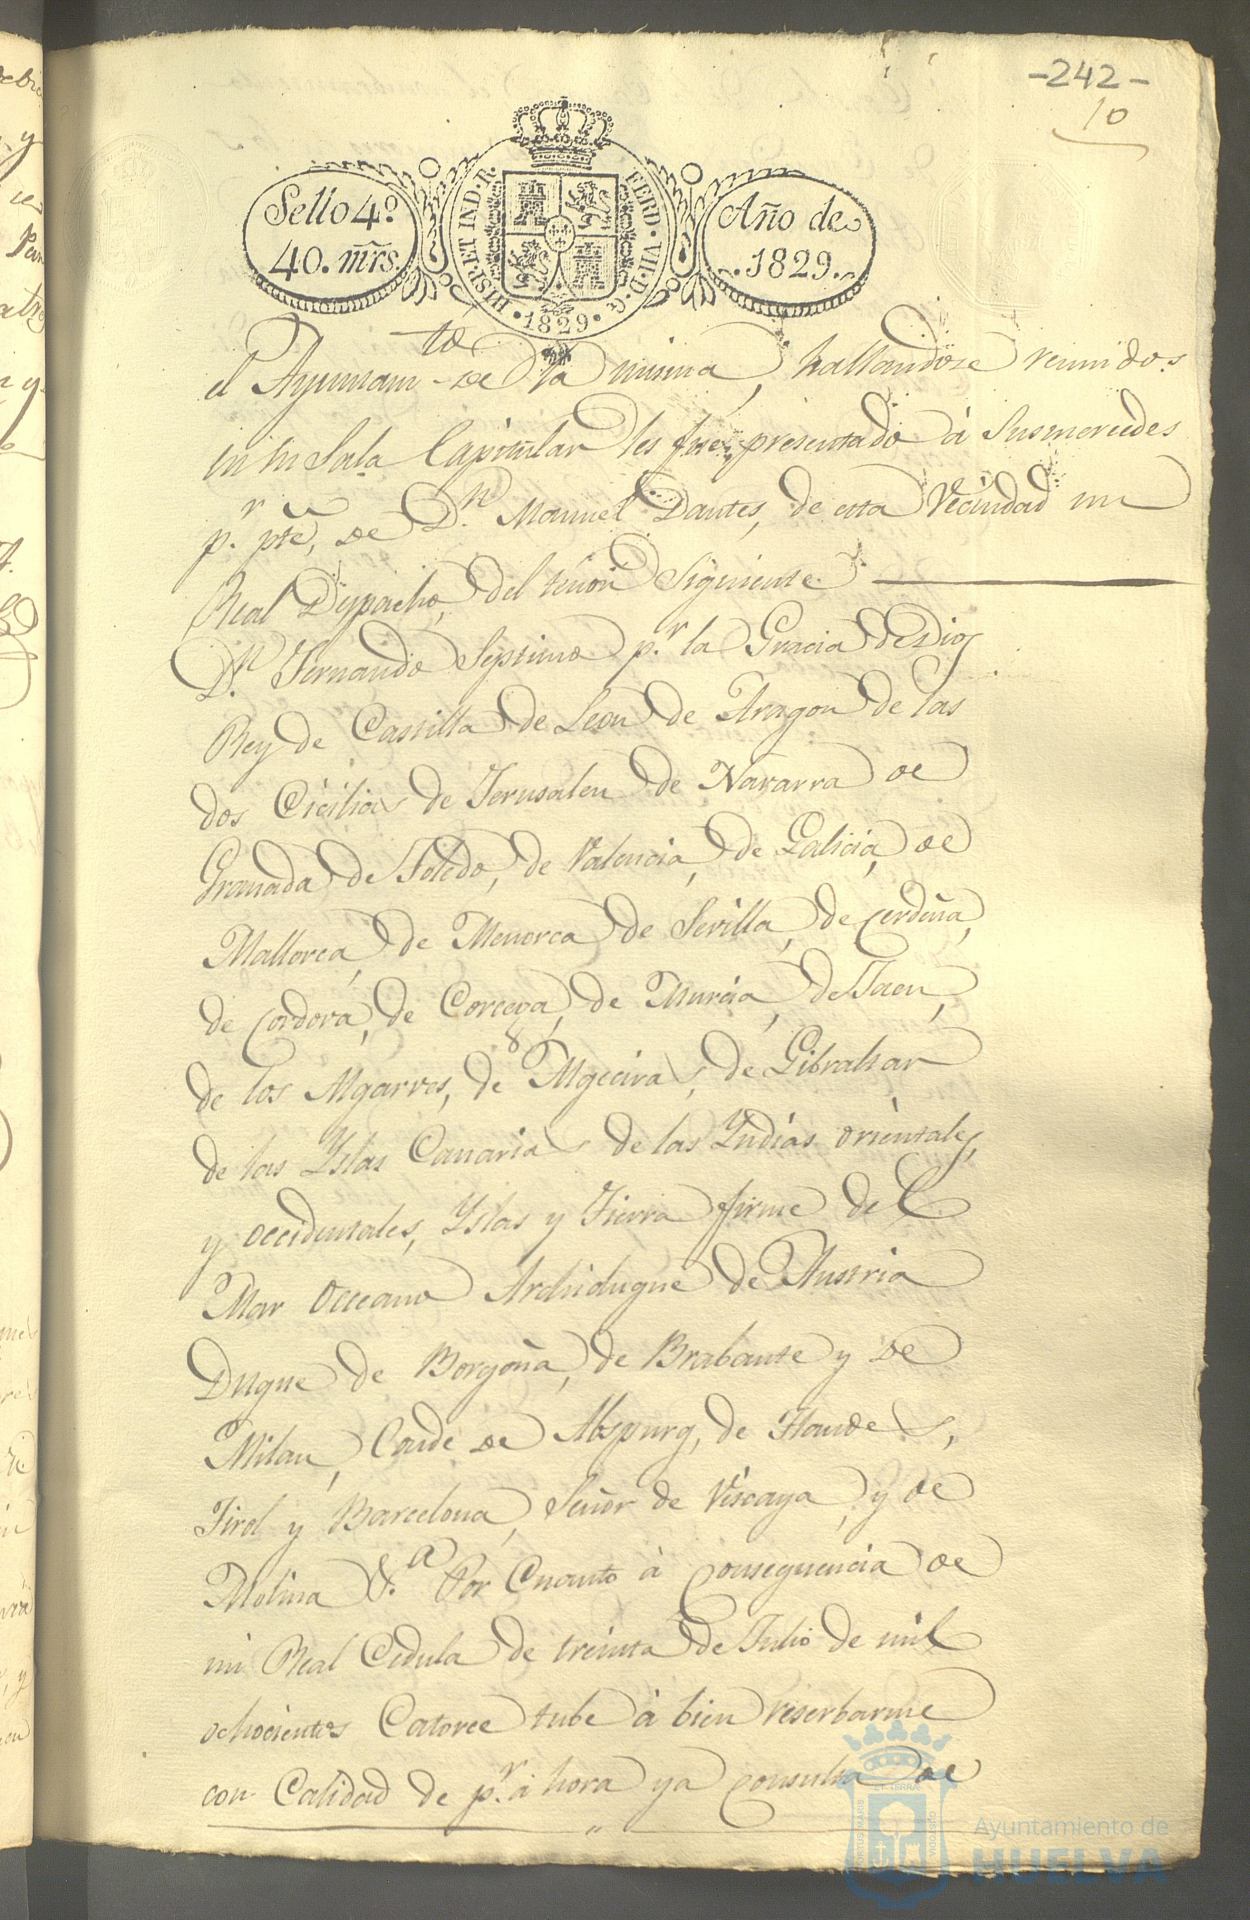 -242-
10
Sello 4º
40. mrs.
HISP. ET IND. R.
FERD. VII. D. G.
· 1829 ·
Año de
1829.
el Ayuntam.to de la misma, hallandose reunidos
en su Sala Capitular les fue presentado à Sus mercedes
p.r pte, de D.n Manuel Dantes, de esta Vecindad un
Real Despacho, del tenor Siguiente.
D.n Fernando Septimo p.r la Gracia de Dios
Rey de Castilla de Leon de Aragon de las
dos Cicilias de Jerusalen de Navarra de
Granada de Toledo, de Valencia, de Galicia, de
Mallorca, de Menorca de Sevilla, de Cerdeña,
de Cordova, de Corcega, de Murcia, de Jaen,
de los Algarves, de Algeciras, de Gibraltar
de las Yslas Canarias de las Yndias orientales,
y occidentales, Yslas y Tierra firme del
Mar Occeano Archiduque de Austria
Duque de Borgoña, de Brabante y de
Milan, Conde de Abspurg, de Flandes,
Tirol y Barcelona, Señor de Viscaya, y de
Molina &.a Por Cuanto à Consequencia de
mi Real Cedula de treinta de Julio de mil
ochocientos Catorce tube à bien reserbarme
con Calidad de p.r ahora ya Consulta de
Ayuntamiento de
HUELVA